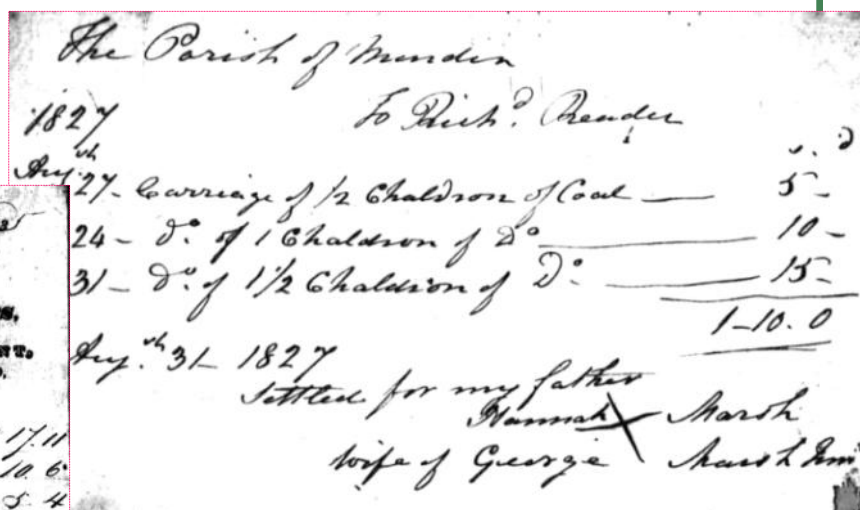 The Parish of Munden
1827 To Richd. Reader
s. d
Augth 27 - Carriage of 1/2 Chaldron of Coal — 5 -
24 - Do. of 1 Chaldron of Do — 10 -
31 - Do. of 1 1/2 Chaldron of Do. — 15 -
1 - 10 . 0
Augth 31 - 1827
Settled for my father
Hannah X Marsh
wife of George Marsh Junr
17.11
10.6
5 4